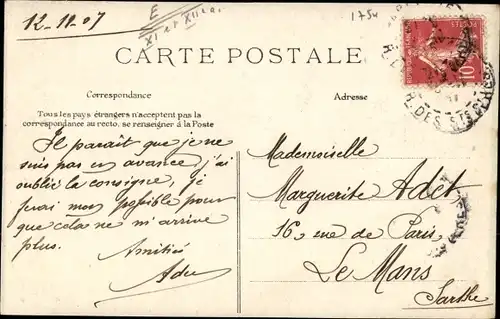 12-11-07
E
XI et XII
1754
CARTE POSTALE
Correspondance
Adresse
Tous les pays étrangers n'acceptent pas la
correspondance au recto. se renseigner à la Poste
Il paraît que je ne
suis pas en avance, j'ai
oublié la consigne, je
ferai mon possible pour
que cela ne m'arrive
plus.
Amitiés
Mademoiselle
Marguerite Adet
16, rue de Paris
Le Mans
Sarthe
10
RUE DES STS PERES